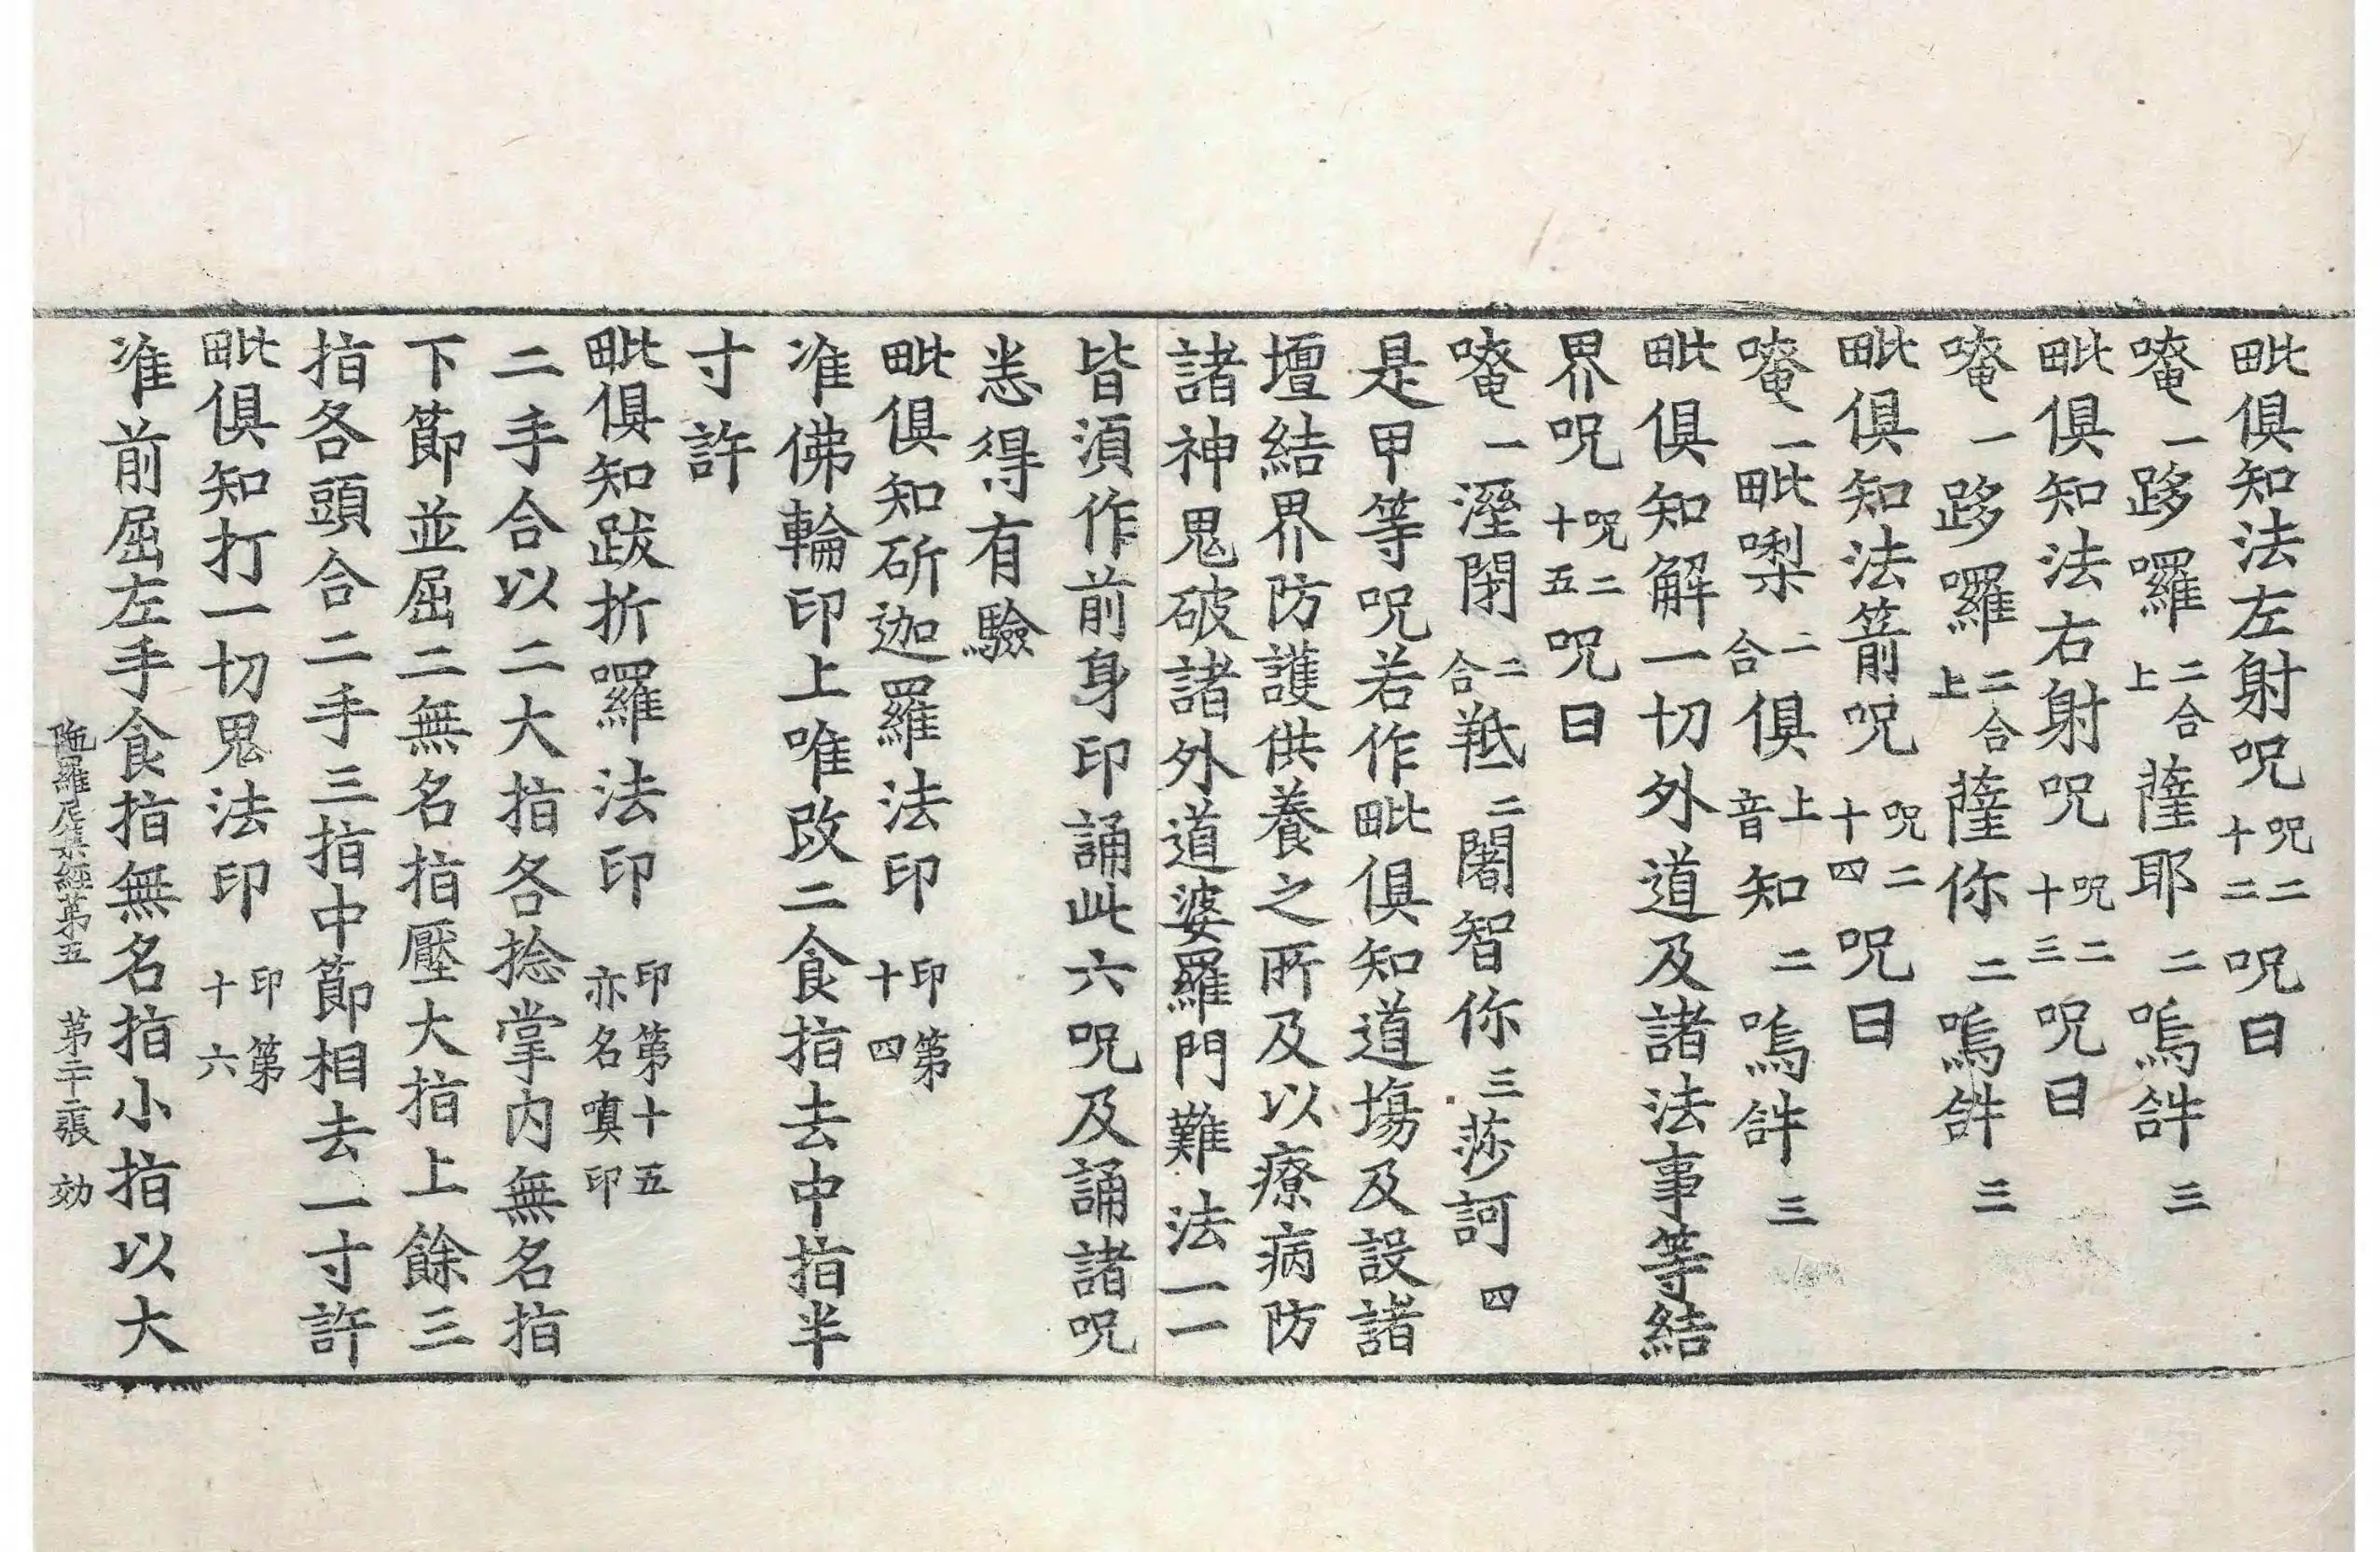 毗俱知法左射呪呪二十二呪曰
唵一跢囉二合上薩耶二嗚𤙖三
毗俱知法右射呪呪二十三呪曰
唵一跢囉二合上薩你二嗚𤙖三
毗俱知法箭呪呪二十四呪曰
唵一毗㗚二合俱上音知二嗚𤙖三
毗俱知解一切外道及諸法事等結
界呪呪二十五呪曰
唵一溼閇二合羝二闍智你三莎訶四
是甲等呪若作毗俱知道塲及設諸
壇結界防護供養之所及以療病防
諸神鬼破諸外道婆羅門難法一一
皆須作前身印誦此六呪及誦諸呪
悉得有驗
毗俱知斫迦羅法印印第十四
准佛輪印上唯改二食指去中指半
寸許
毗俱知跋折囉法印印第十五亦名嗔印
二手合以二大指各捻掌内無名指
下節並屈二無名指壓大指上餘三
指各頭合二手三指中節相去一寸許
毗俱知打一切鬼法印印第十六
准前屈左手食指無名指小指以大
陁羅尼集經第五 第二十二張 効